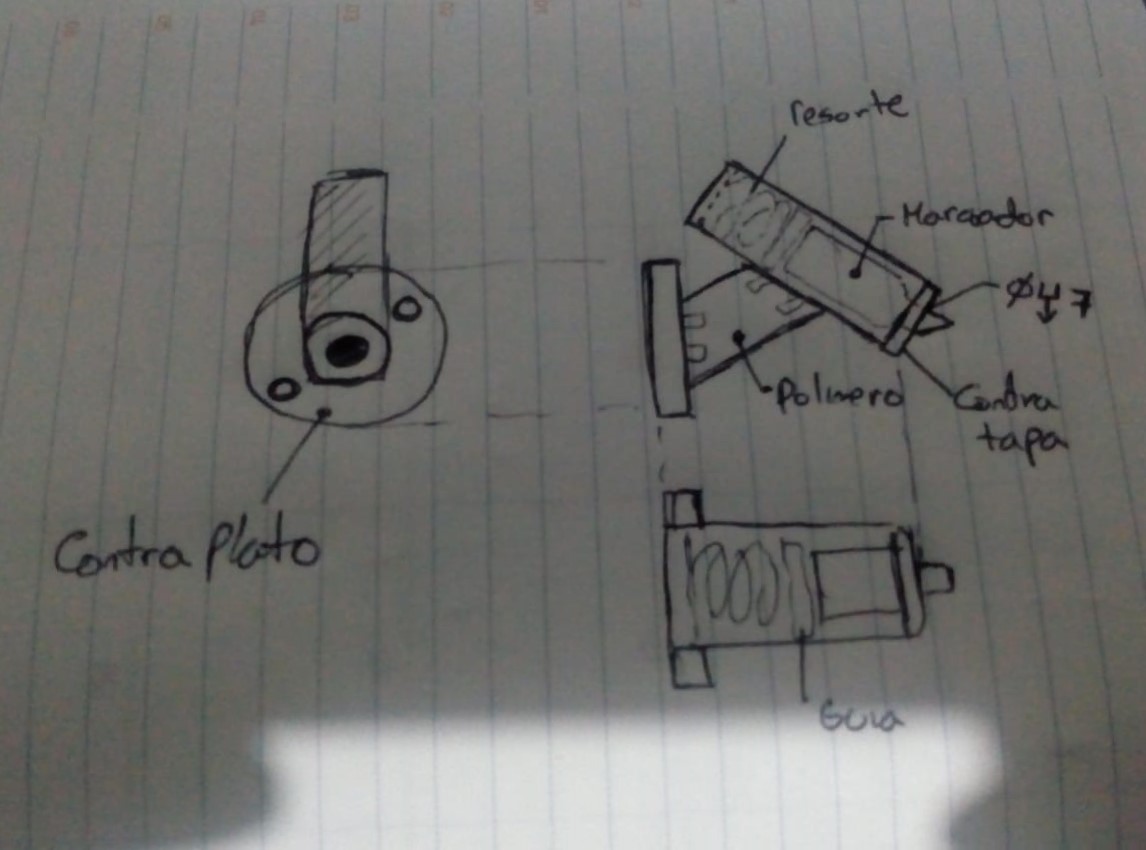 resorte
Marcador
Polimero
Contra
tapa
Contra Plato
Guia